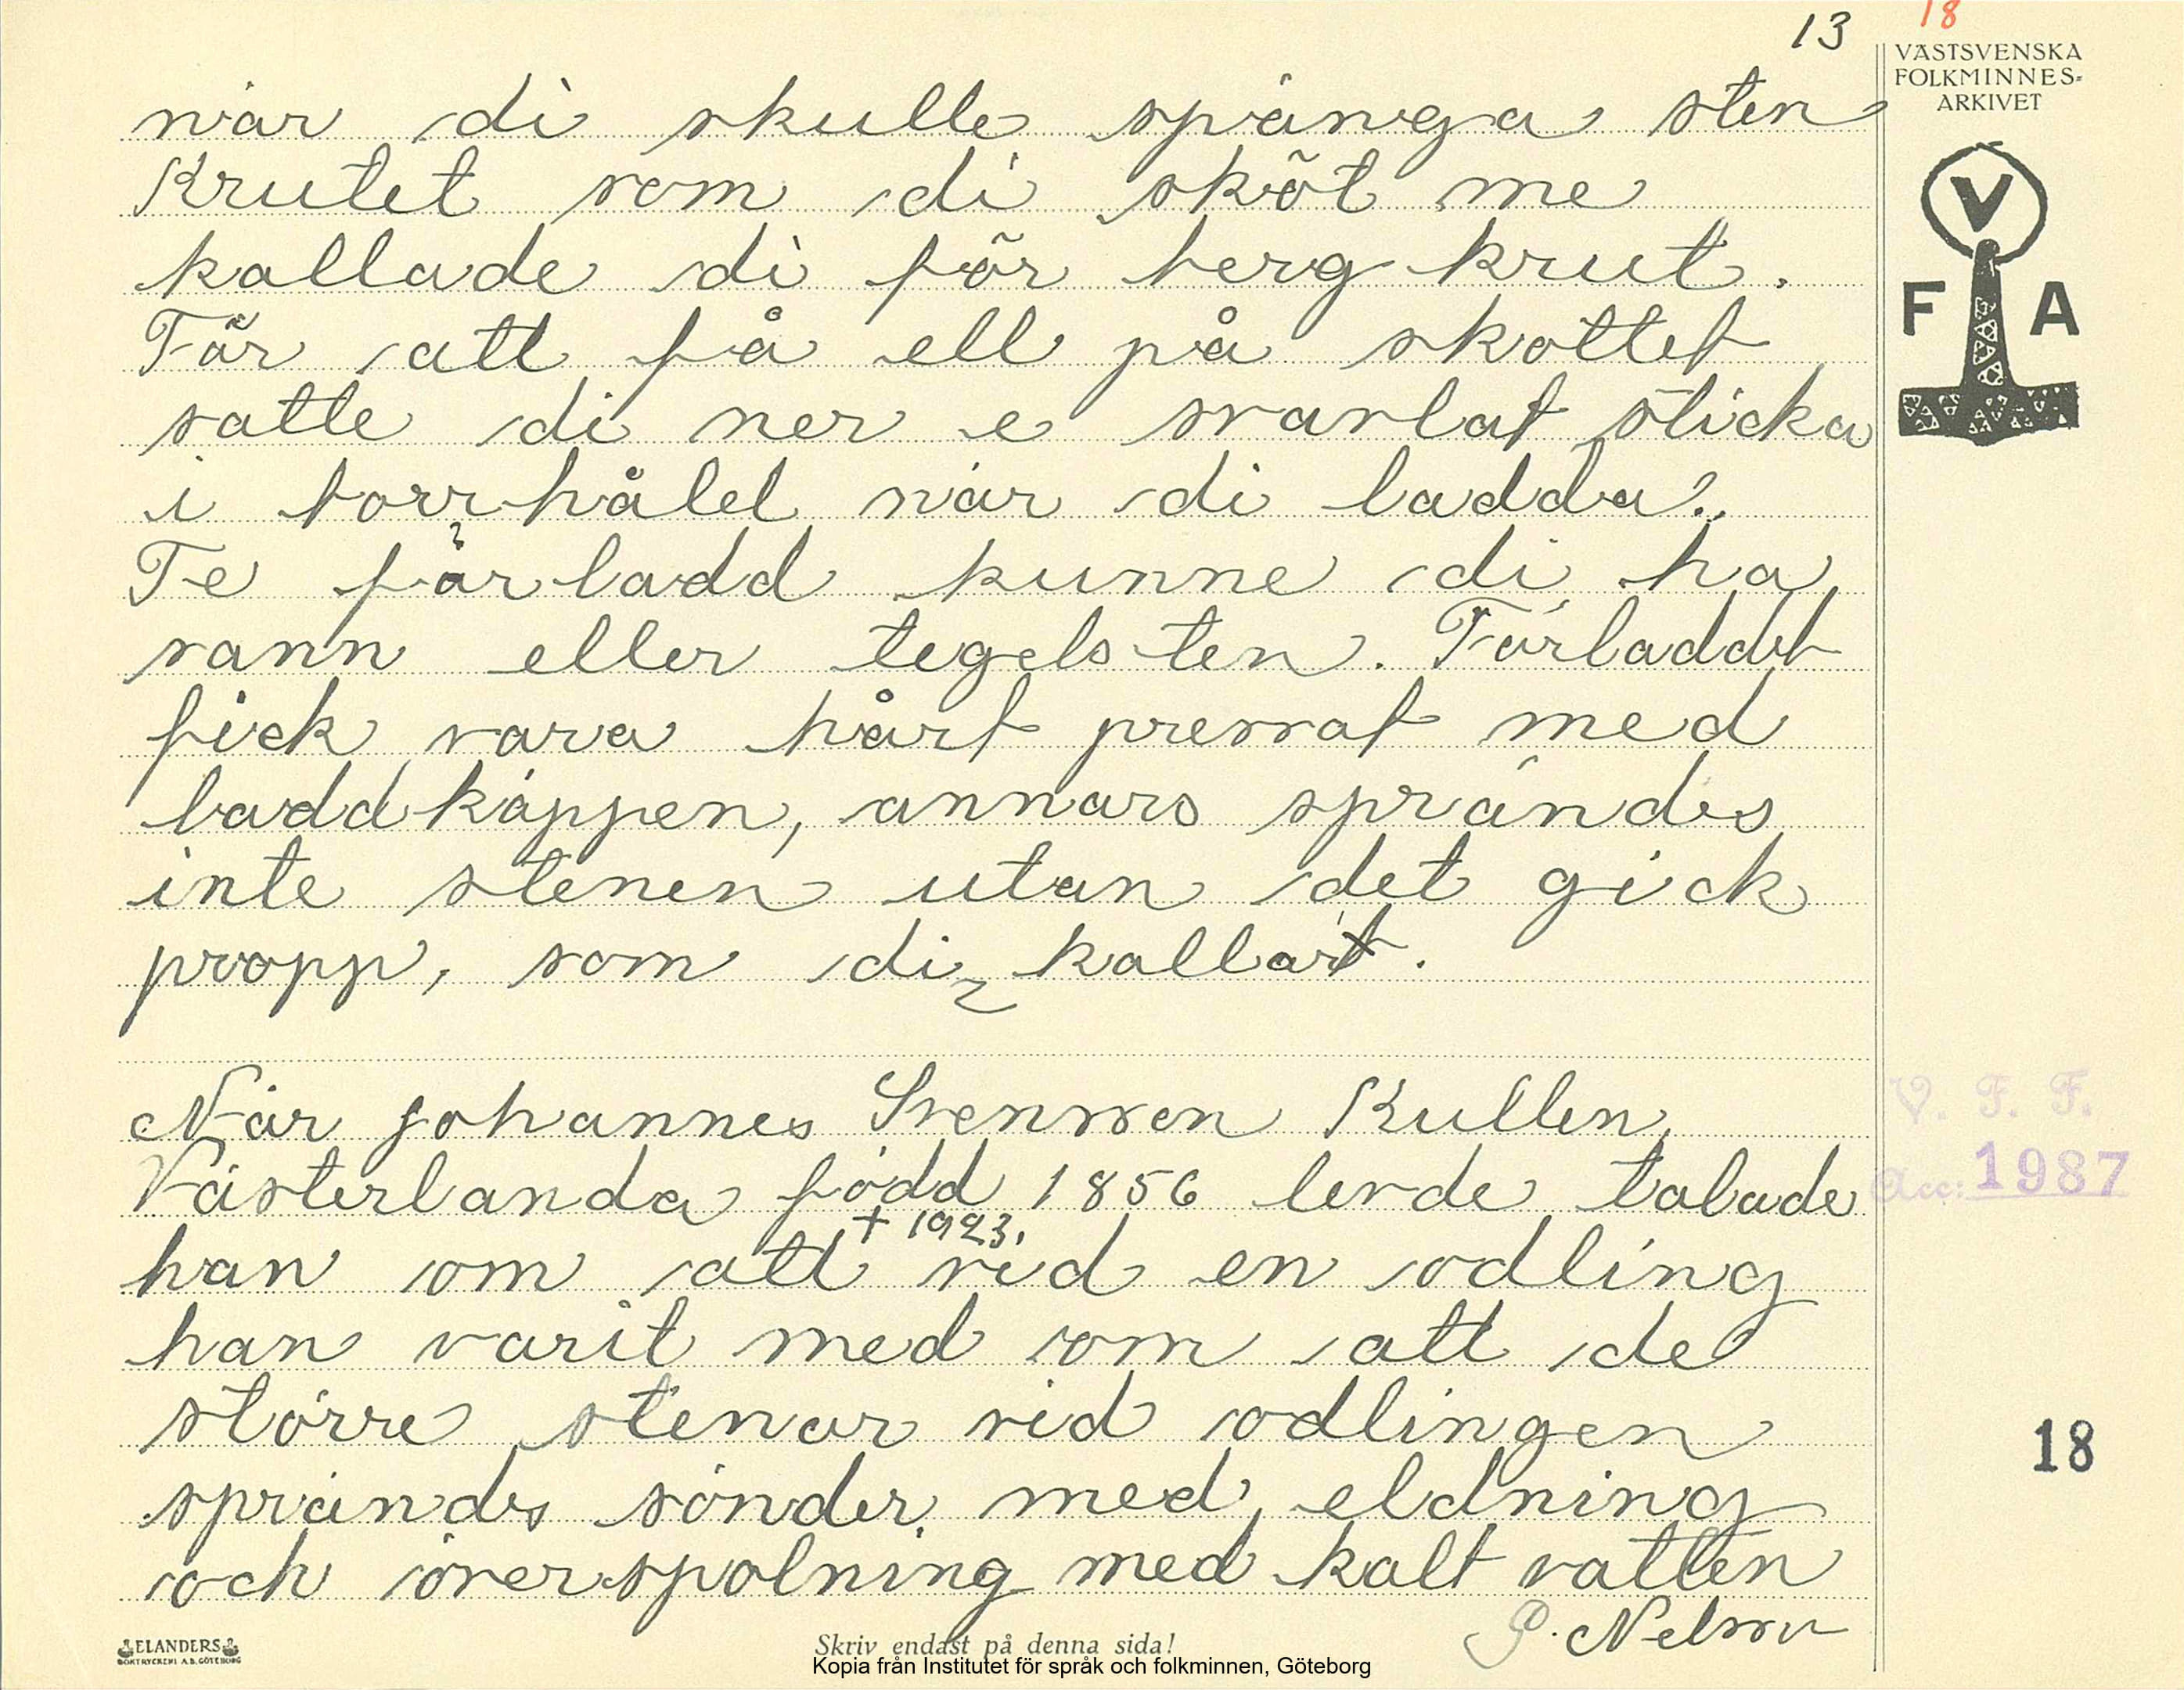 13 18
VÄSTSVENSKA
FOLKMINNES-
ARKIVET
V
F A
när di skulle spänga sten
Krutet som di sköt me
kallade di för berg krut.
För att få ell på skottet
satte di ner e svavlat sticka
i borrhålel när di ladda.
Te förladd kunne di ha
sann eller tegelsten. Förladdet
fick vara hårt pressat med
laddkäppen, annars sprändes
inte stenen utan det gick
propp, som di kallat.
När Johannes Svensson Kullen
Västerlanda född 1856 levde talade
† 1923.
han om att vid en odling
han varit med om att de
större stenar vid odlingen
sprändes sönder med eldning
och överspolning med kalt vatten
P. Nelson
V. F. F.
Acc: 1987
18
ELANDERS
BOKTRYCKERI A.B. GÖTEBORG
Skriv endast på denna sida!
Kopia från Institutet för språk och folkminnen, Göteborg